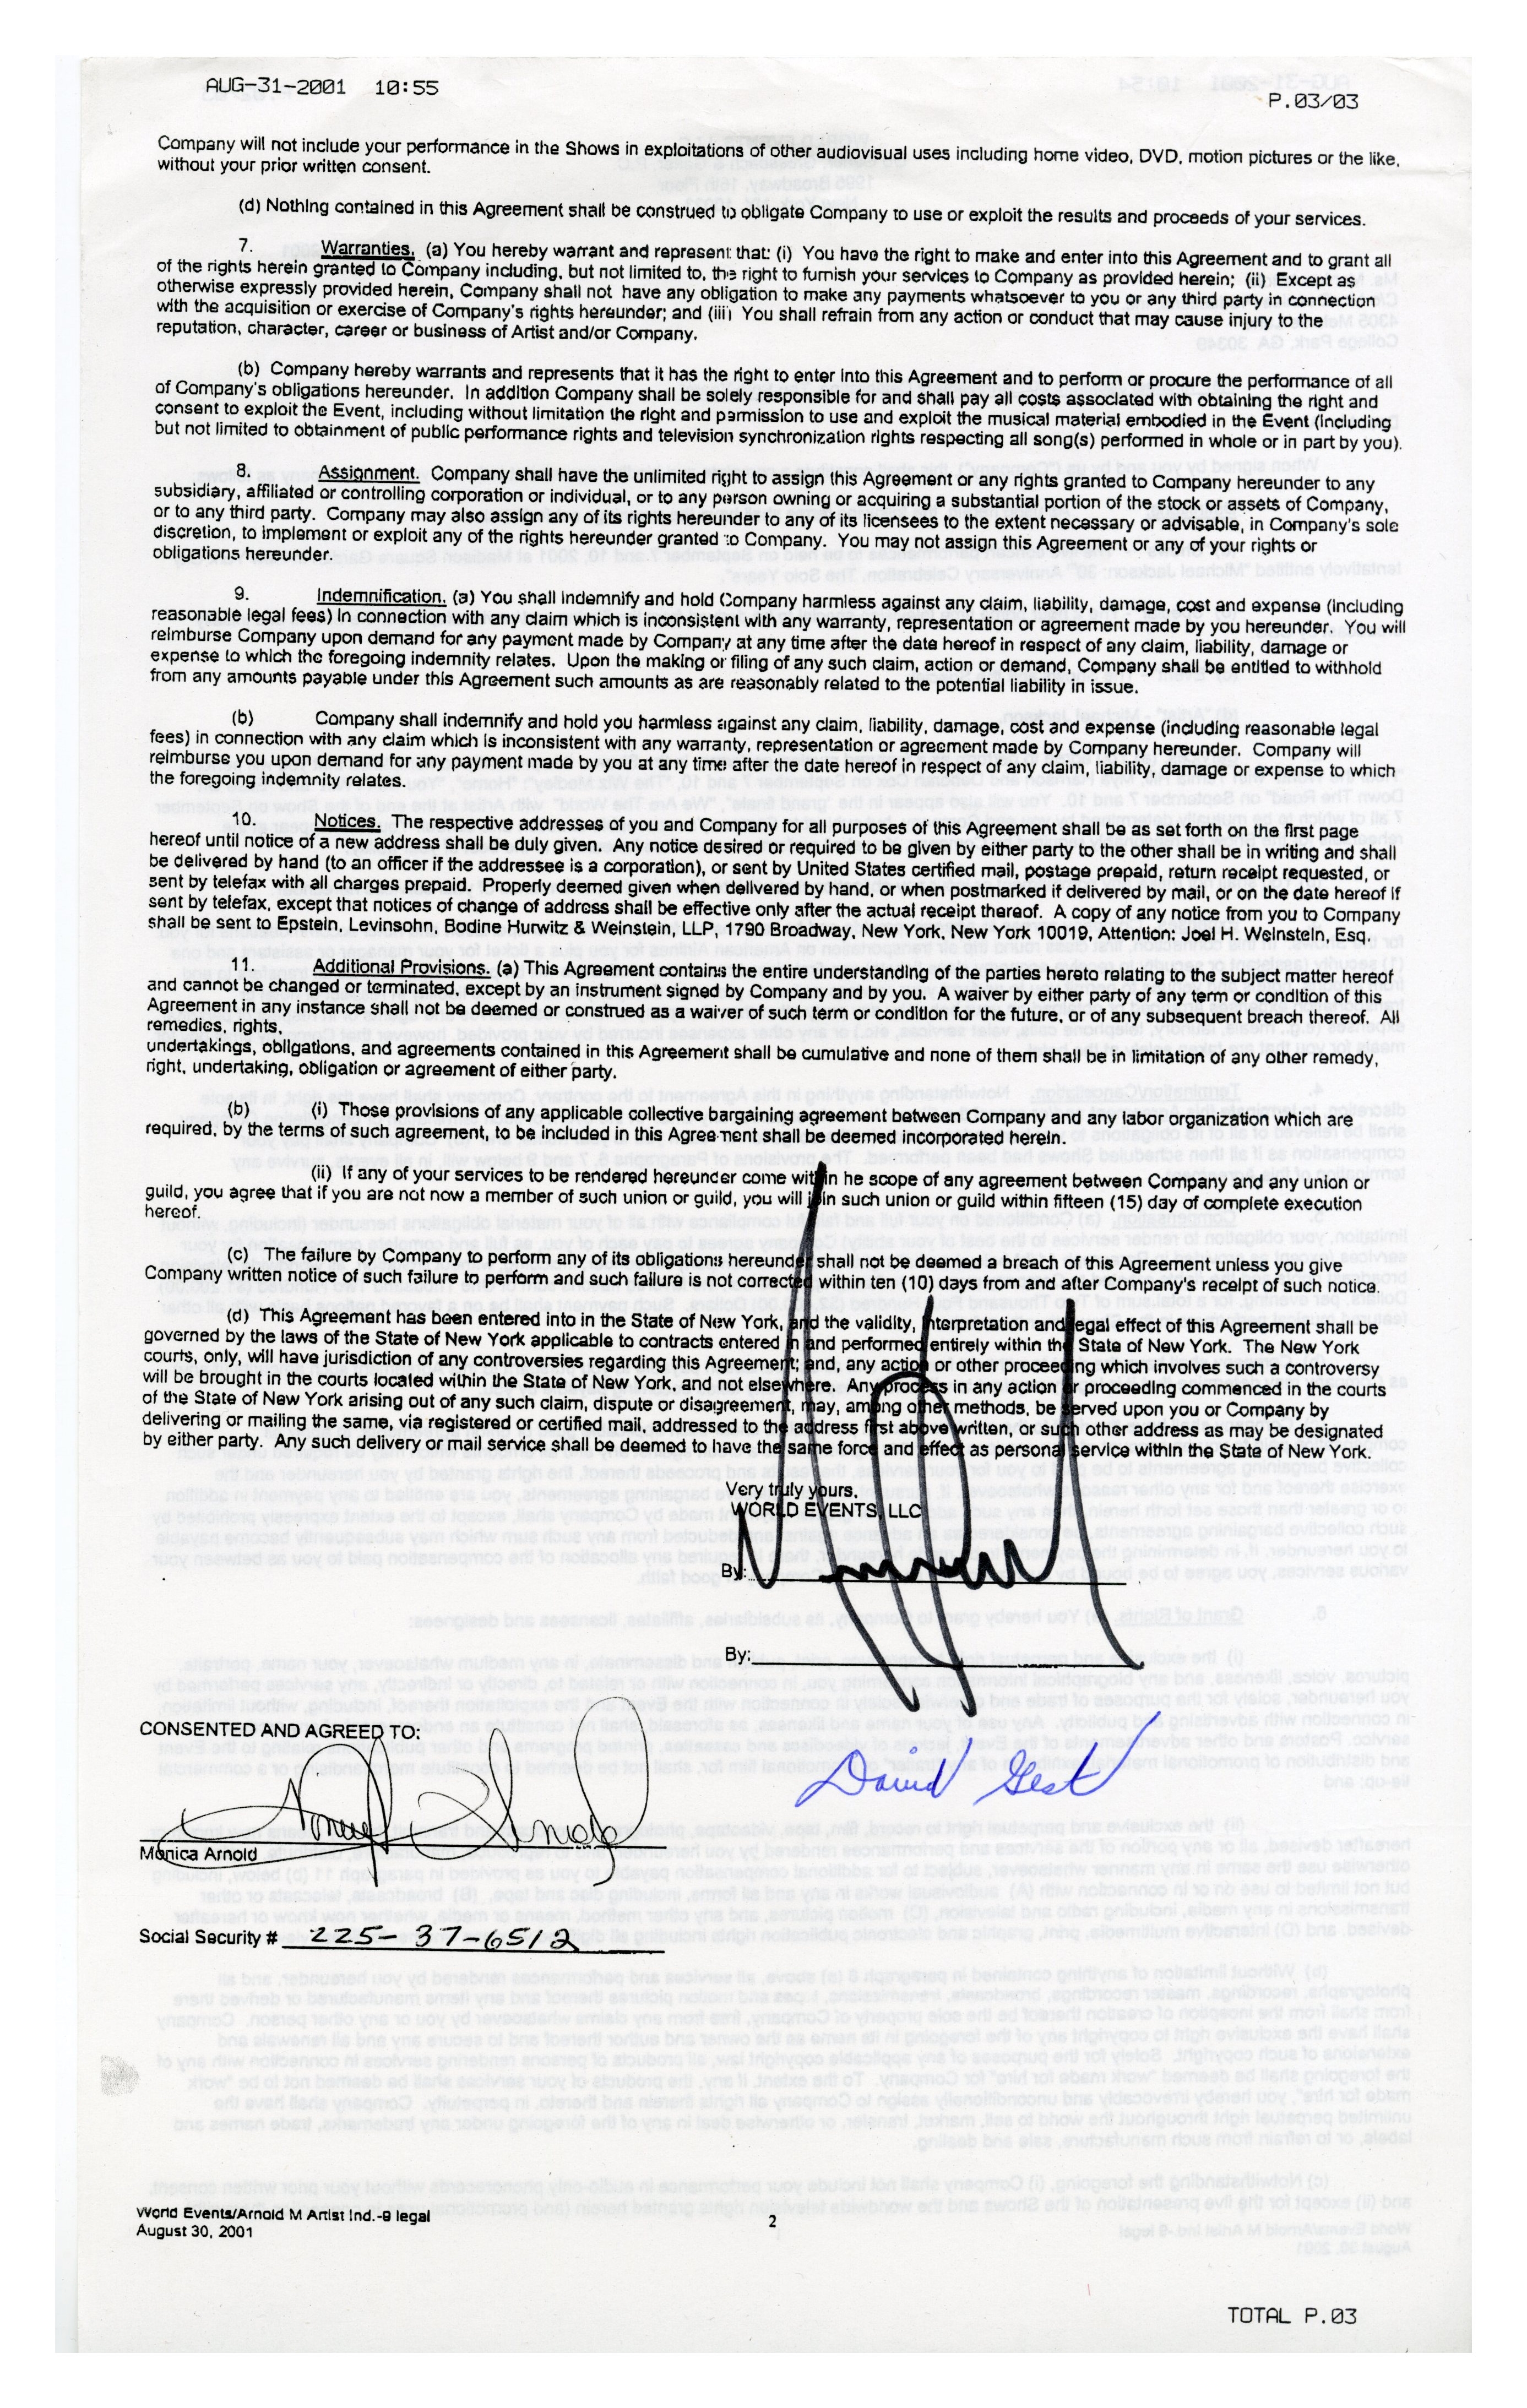 AUG-31-2001 10:55
P.03/03
Company will not include your performance in the Shows in exploitations of other audiovisual uses including home video, DVD, motion pictures or the like,
without your prior written consent.
(d) Nothing contained in this Agreement shall be construed to obligate Company to use or exploit the results and proceeds of your services.
7. Warranties. (a) You hereby warrant and represent that: (i) You have the right to make and enter into this Agreement and to grant all
of the rights herein granted to Company including, but not limited to, the right to furnish your services to Company as provided herein; (ii) Except as
otherwise expressly provided herein, Company shall not have any obligation to make any payments whatsoever to you or any third party in connection
with the acquisition or exercise of Company's rights hereunder; and (iii) You shall refrain from any action or conduct that may cause injury to the
reputation, character, career or business of Artist and/or Company.
(b) Company hereby warrants and represents that it has the right to enter into this Agreement and to perform or procure the performance of all
of Company's obligations hereunder. In addition Company shall be solely responsible for and shall pay all costs associated with obtaining the right and
consent to exploit the Event, including without limitation the right and permission to use and exploit the musical material embodied in the Event (including
but not limited to obtainment of public performance rights and television synchronization rights respecting all song(s) performed in whole or in part by you).
8. Assignment. Company shall have the unlimited right to assign this Agreement or any rights granted to Company hereunder to any
subsidiary, affiliated or controlling corporation or individual, or to any person owning or acquiring a substantial portion of the stock or assets of Company,
or to any third party. Company may also assign any of its rights hereunder to any of its licensees to the extent necessary or advisable, in Company's sole
discretion, to implement or exploit any of the rights hereunder granted to Company. You may not assign this Agreement or any of your rights or
obligations hereunder.
9. Indemnification. (a) You shall indemnify and hold Company harmless against any claim, liability, damage, cost and expense (including
reasonable legal fees) in connection with any claim which is inconsistent with any warranty, representation or agreement made by you hereunder. You will
reimburse Company upon demand for any payment made by Company at any time after the date hereof in respect of any claim, liability, damage or
expense to which the foregoing indemnity relates. Upon the making or filing of any such claim, action or demand, Company shall be entitled to withhold
from any amounts payable under this Agreement such amounts as are reasonably related to the potential liability in issue.
(b) Company shall indemnify and hold you harmless against any claim, liability, damage, cost and expense (including reasonable legal
fees) in connection with any claim which is inconsistent with any warranty, representation or agreement made by Company hereunder. Company will
reimburse you upon demand for any payment made by you at any time after the date hereof in respect of any claim, liability, damage or expense to which
the foregoing indemnity relates.
10. Notices. The respective addresses of you and Company for all purposes of this Agreement shall be as set forth on the first page
hereof until notice of a new address shall be duly given. Any notice desired or required to be given by either party to the other shall be in writing and shall
be delivered by hand (to an officer if the addressee is a corporation), or sent by United States certified mail, postage prepaid, return receipt requested, or
sent by telefax with all charges prepaid. Properly deemed given when delivered by hand, or when postmarked if delivered by mail, or on the date hereof if
sent by telefax, except that notices of change of address shall be effective only after the actual receipt thereof. A copy of any notice from you to Company
shall be sent to Epstein, Levinsohn, Bodine Hurwitz & Weinstein, LLP, 1790 Broadway, New York, New York 10019, Attention: Joel H. Weinstein, Esq.
11. Additional Provisions. (a) This Agreement contains the entire understanding of the parties hereto relating to the subject matter hereof
and cannot be changed or terminated, except by an instrument signed by Company and by you. A waiver by either party of any term or condition of this
Agreement in any instance shall not be deemed or construed as a waiver of such term or condition for the future, or of any subsequent breach thereof. All
remedies, rights,
undertakings, obligations, and agreements contained in this Agreement shall be cumulative and none of them shall be in limitation of any other remedy,
right, undertaking, obligation or agreement of either party.
(b) (i) Those provisions of any applicable collective bargaining agreement between Company and any labor organization which are
required, by the terms of such agreement, to be included in this Agreement shall be deemed incorporated herein.
(ii) If any of your services to be rendered hereunder come within he scope of any agreement between Company and any union or
guild, you agree that if you are not now a member of such union or guild, you will join such union or guild within fifteen (15) day of complete execution
hereof.
(c) The failure by Company to perform any of its obligations hereunder shall not be deemed a breach of this Agreement unless you give
Company written notice of such failure to perform and such failure is not corrected within ten (10) days from and after Company's receipt of such notice.
(d) This Agreement has been entered into in the State of New York, and the validity, interpretation and legal effect of this Agreement shall be
governed by the laws of the State of New York applicable to contracts entered in and performed entirely within the State of New York. The New York
courts, only, will have jurisdiction of any controversies regarding this Agreement; and, any action or other proceeding which involves such a controversy
will be brought in the courts located within the State of New York, and not elsewhere. Any process in any action or proceeding commenced in the courts
of the State of New York arising out of any such claim, dispute or disagreement, may, among other methods, be served upon you or Company by
delivering or mailing the same, via registered or certified mail, addressed to the address first above written, or such other address as may be designated
by either party. Any such delivery or mail service shall be deemed to have the same force and effect as personal service within the State of New York.
Very truly yours,
WORLD EVENTS, LLC
By:
By:
CONSENTED AND AGREED TO:
David Gest
Monica Arnold
Social Security #
World Events/Arnold M Artist Ind.-9 legal
August 30, 2001
2
TOTAL P.03